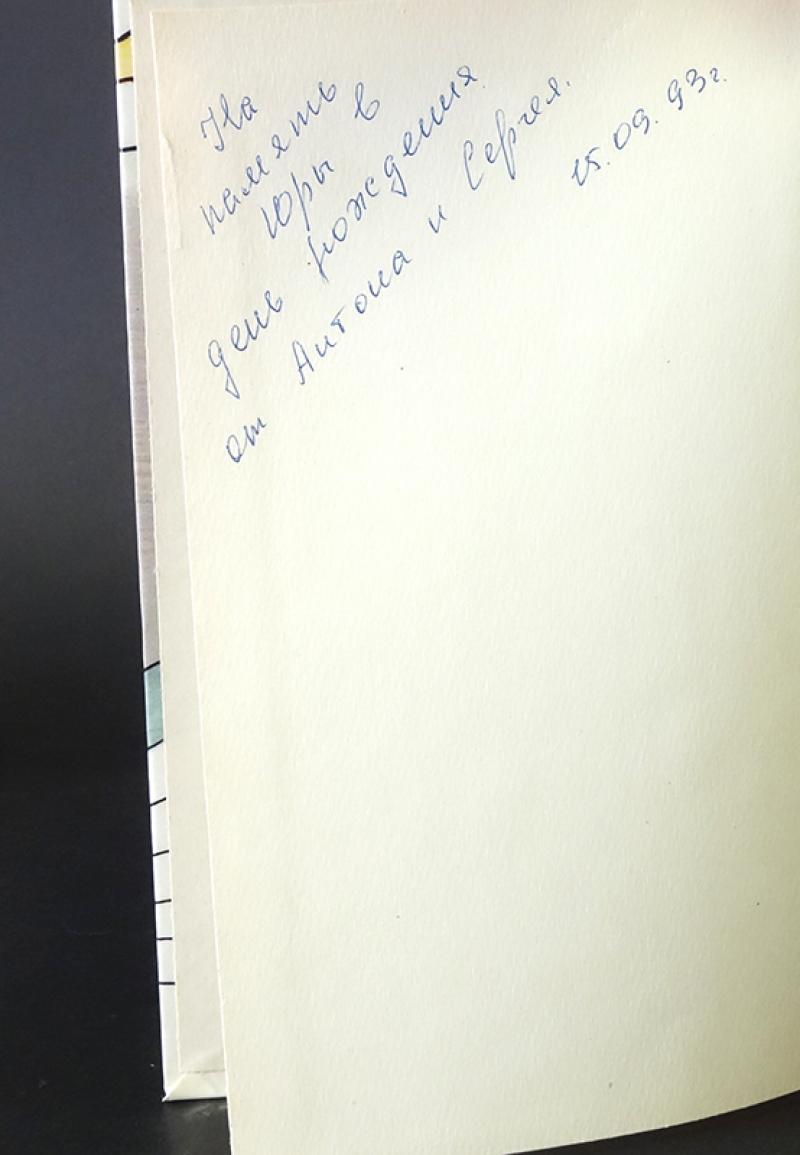 На
память
Юры в
день рождения
от Антона и Сергея.
15.09.93г.